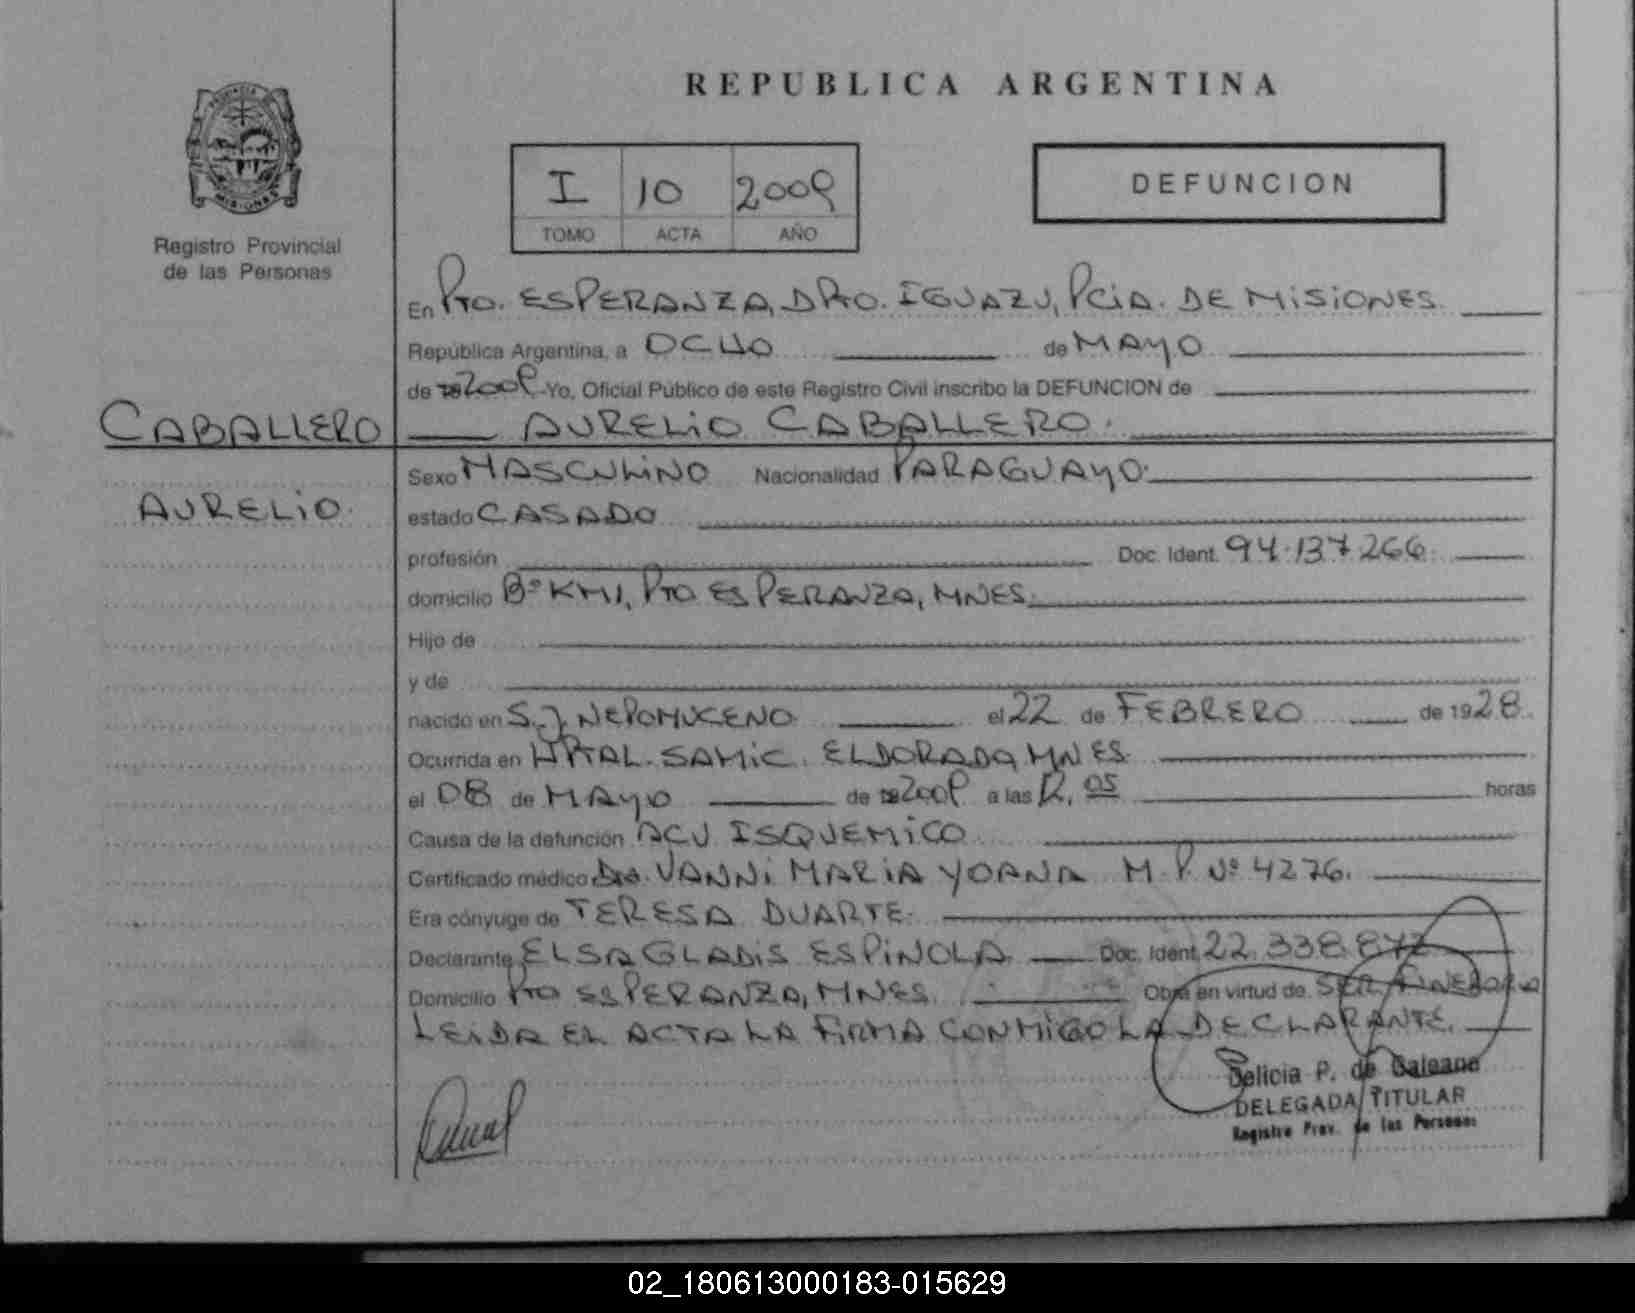 REPUBLICA ARGENTINA
I 10 2009
TOMO ACTA AÑO
DEFUNCION
PROVINCIA
MISIONES
Registro Provincial
de las Personas
En Pto. ESPERANZA, DPto. IGUAZU, PCiA. DE MiSiONES.
República Argentina, a OCHO de MAYO
de 19 2009 .-Yo, Oficial Público de este Registro Civil inscribo la DEFUNCION de
CABALLERO AURELiO CABALLERO.
Sexo MASCULiNO Nacionalidad PARAGUAYO.
AURELiO. estado CASADO
profesión Doc. Ident. 94.137.266.
domicilio Bº KM1, Pto ESPERANZA, MNES.
Hijo de
y de
nacido en S. J. NEPOMUCENO el 22 de FEBRERO de 1928.
Ocurrida en HPTAL. SAMiC. ELDORADO, MNES.
el 08 de MAYO de 19 2009 a las 12,05 horas
Causa de la defunción ACV. ISQUEMiCO
Certificado médico Dra. VANNi MARiA YOANA M.P. Nº 4276.
Era cónyuge de TERESA DUARTE.
Declarante ELSA GLADiS ESPiNOLA. Doc. Ident. 22.338.872
Domicilio Pto ESPERANZA, MNES. Obra en virtud de. SER. FUNEBARIO
LEiDA EL ACTA LA FiRMA CONMiGO LA DECLARANTE.
Delicia P. de Galeano
DELEGADA TITULAR
Registro Prov. de las Personas
02_180613000183-015629